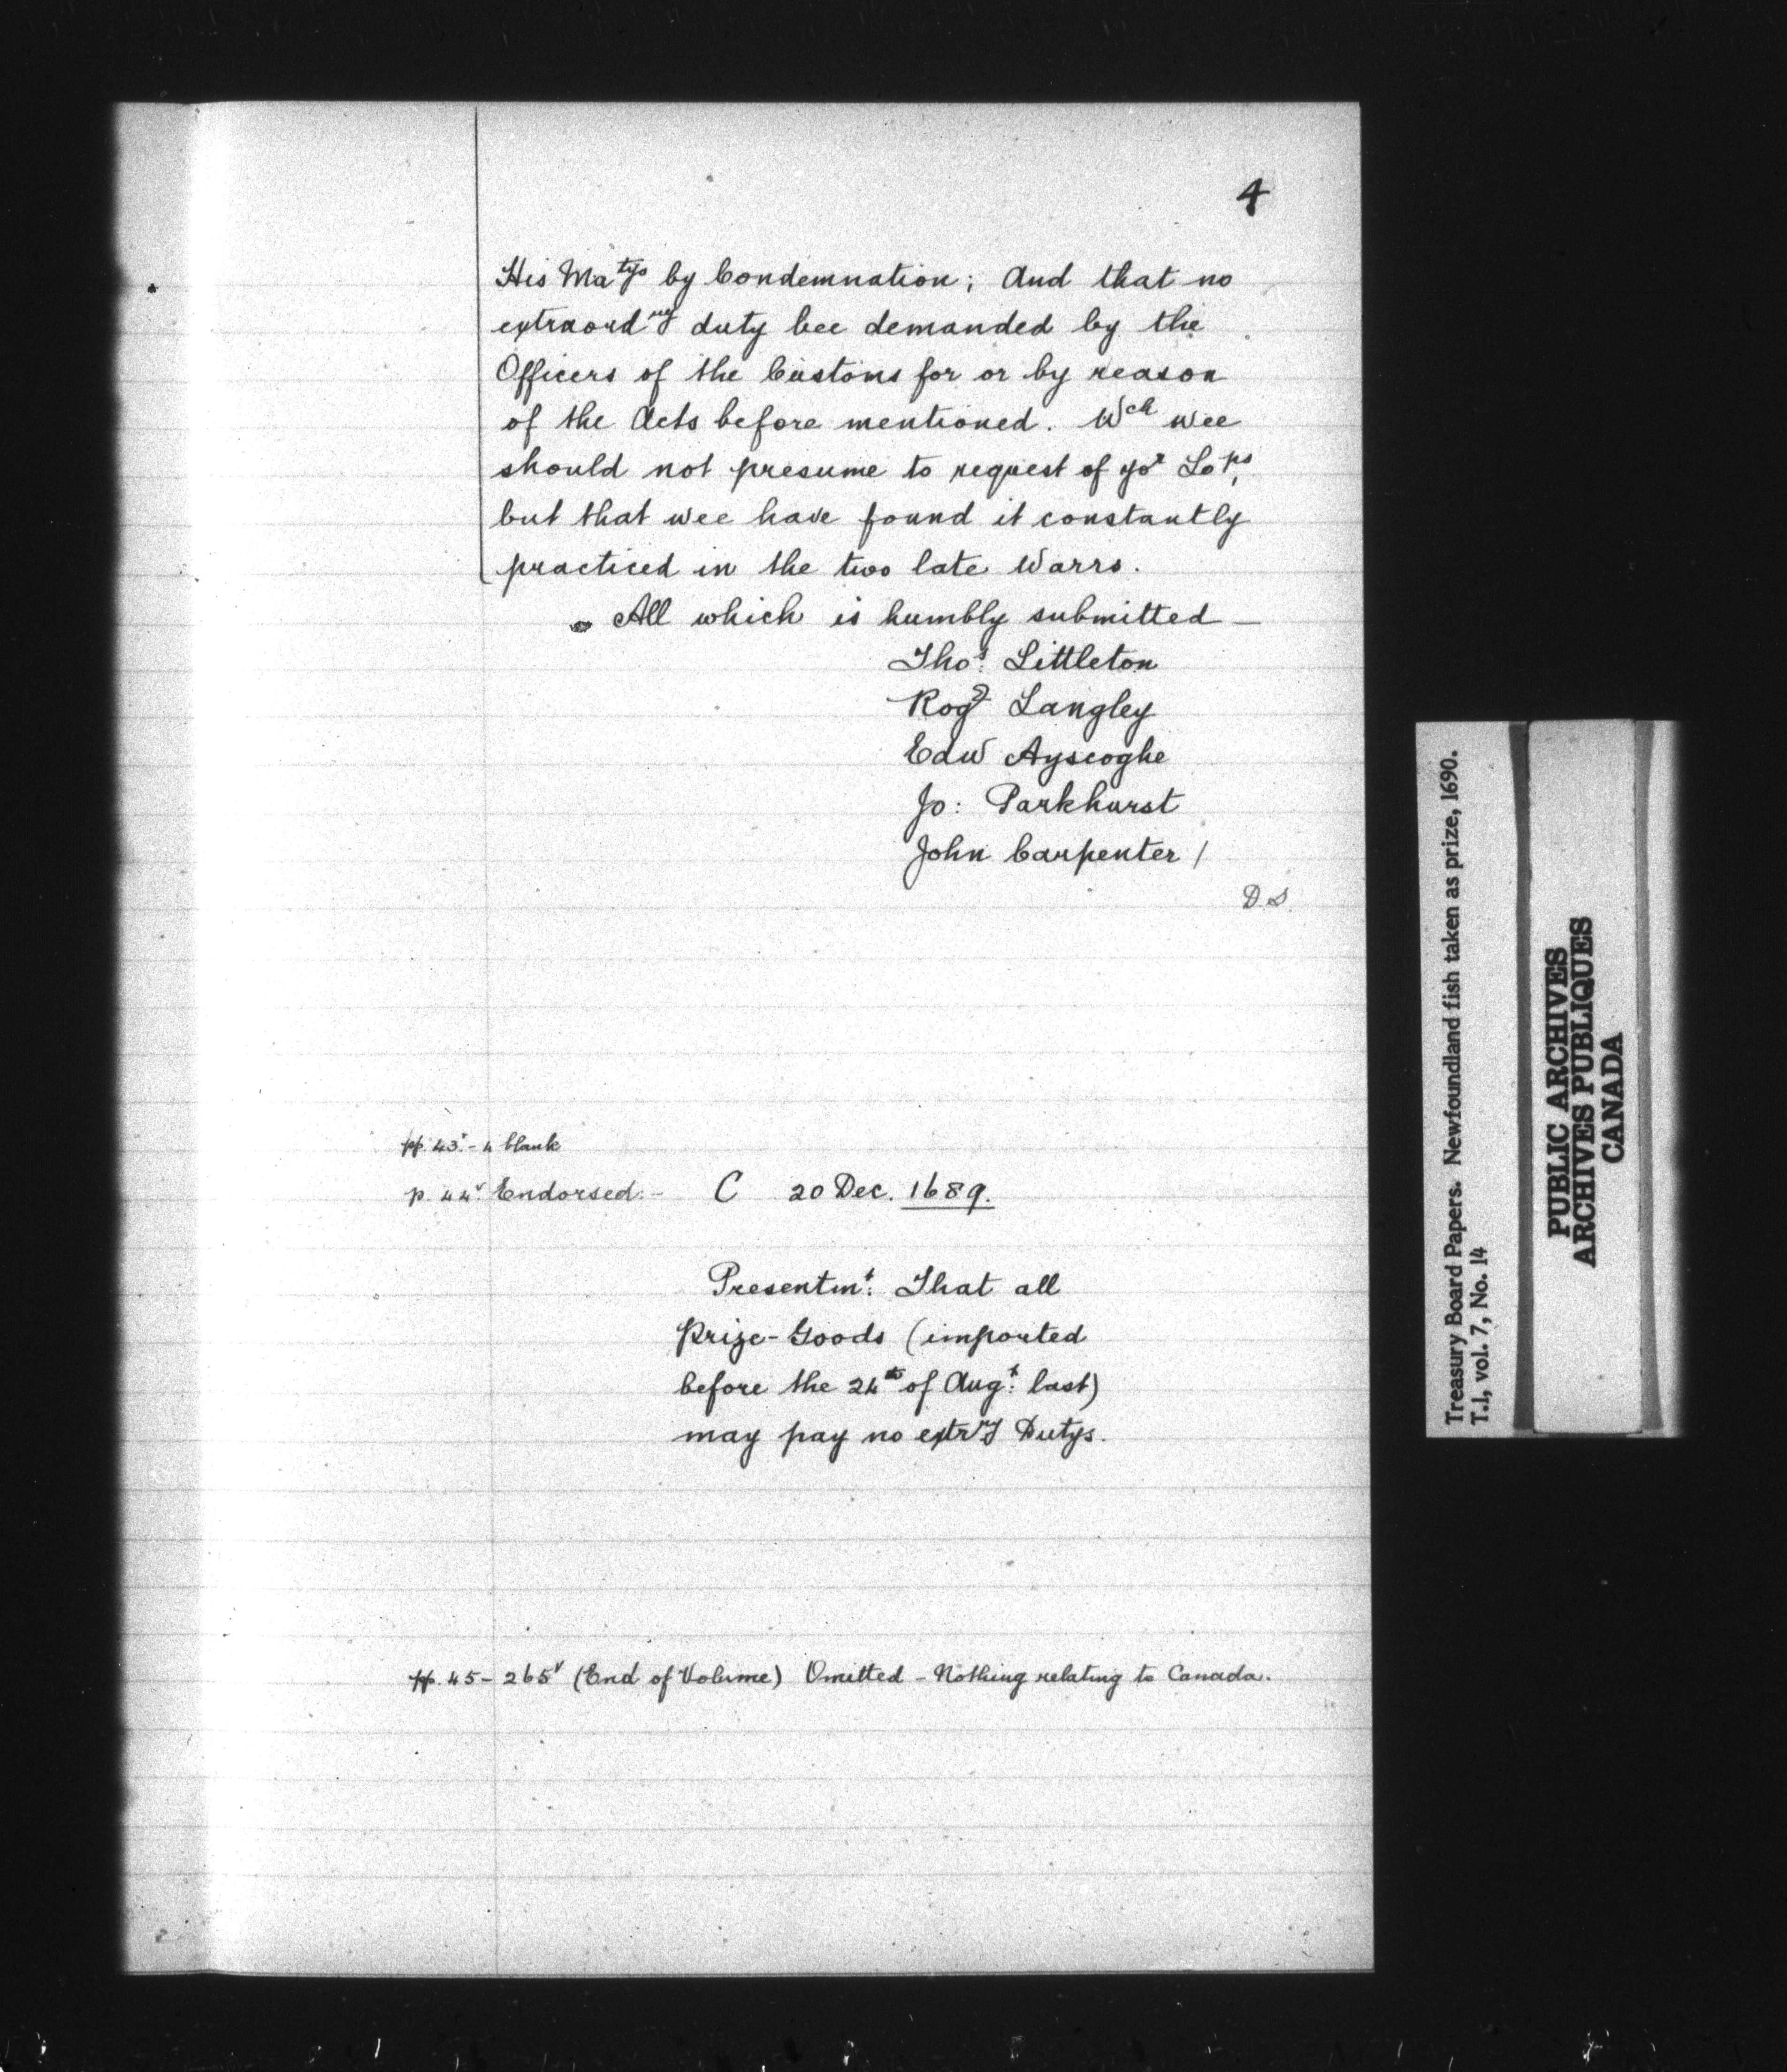 4
His Ma^tys by Condemnation; And that no
extraord^ry duty bee demanded by the
Officers of the Customs for or by reason
of the Acts before mentioned. W^ch wee
should not presume to request of yo^r Lo^ps,
but that wee have found it constantly
practiced in the two late Warrs.
All which is humbly submitted —
Tho^s: Littleton
Rog^r Langley
Edw Ayscoghe
Jo: Parkhurst
John Carpenter /
D.S.
pp. 43^v - 4 blank
p. 44^v. Endorsed: - C 20 Dec. 1689.
Presentm^t: That all
Prize-Goods (imported
before the 24^th of Aug^t: last)
may pay no extr^ry Dutys.
pp. 45 - 265^v (End of Volume) Omitted - Nothing relating to Canada.
Treasury Board Papers. Newfoundland fish taken as prize, 1690.
T.1, vol. 7, No. 14
PUBLIC ARCHIVES
ARCHIVES PUBLIQUES
CANADA